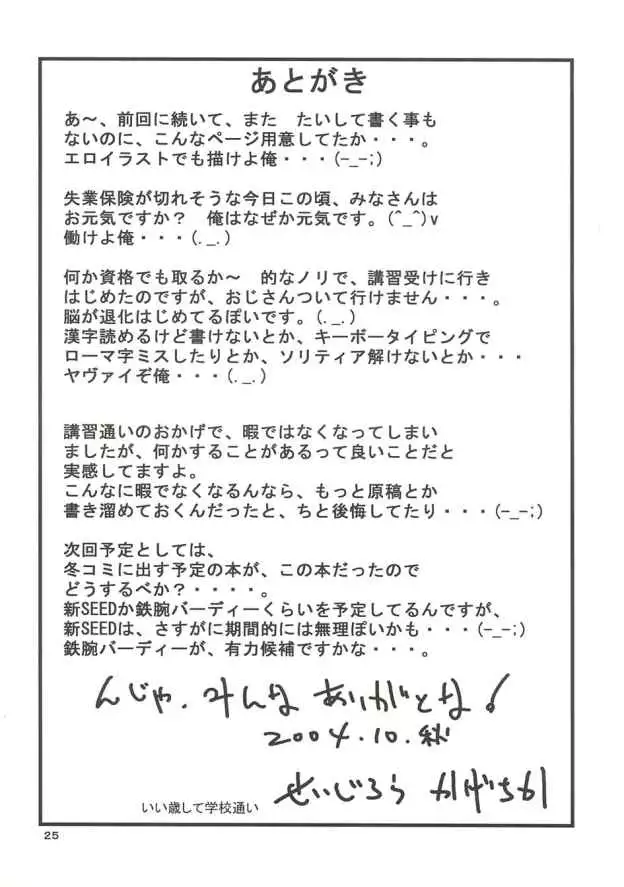 あとがき
あ～、前回に続いて、また　たいして書く事も
ないのに、こんなページ用意してたか・・・。
エロイラストでも描けよ俺・・・(-_-;)
失業保険が切れそうな今日この頃、みなさんは
お元気ですか？　俺はなぜか元気です。(^_^)v
働けよ俺・・・(._.)
何か資格でも取るか～　的なノリで、講習受けに行き
はじめたのですが、おじさんついて行けません・・・。
脳が退化はじめてるぽいです。(._.)
漢字読めるけど書けないとか、キーボータイピングで
ローマ字ミスしたりとか、ソリティア解けないとか・・・
ヤヴァイぞ俺・・・(._.)
講習通いのおかげで、暇ではなくなってしまい
ましたが、何かすることがあるって良いことだと
実感してますよ。
こんなに暇でなくなるんなら、もっと原稿とか
書き溜めておくんだったと、ちと後悔してたり・・・(-_-;)
次回予定としては、
冬コミに出す予定の本が、この本だったので
どうするべか？・・・・。
新SEEDか鉄腕バーディーくらいを予定してるんですが、
新SEEDは、さすがに期間的には無理ぽいかも・・・(-_-;)
鉄腕バーディーが、有力候補ですかな・・・。
んじゃ、みんな ありがとな！
2004.10.秋
せいじろう かげちか
いい歳して学校通い
25